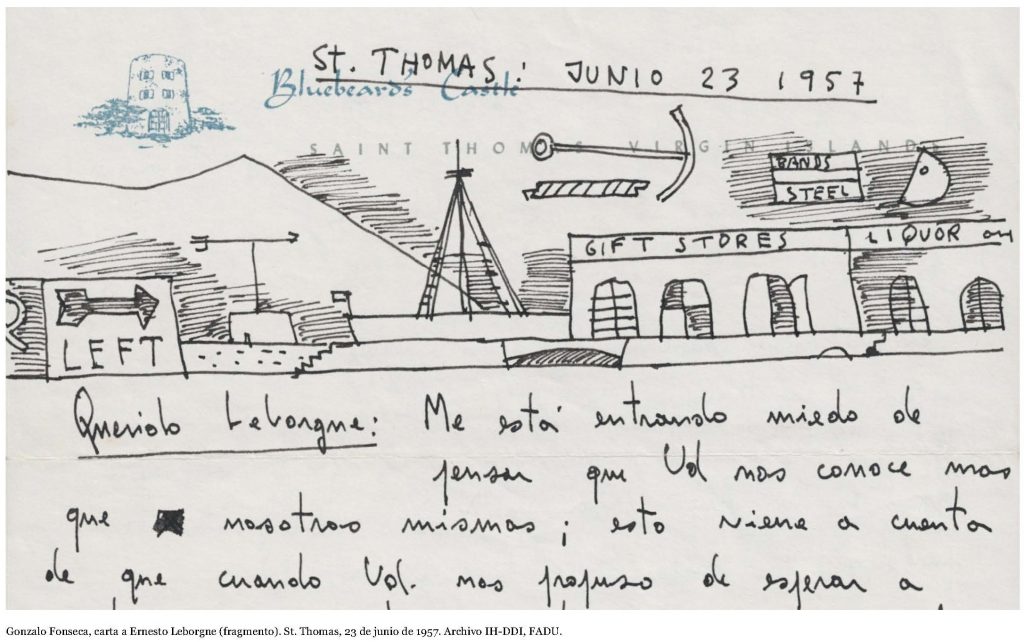 St. THOMAS: JUNIO 23 1957
Bluebeard's Castle
SAINT THOMAS, VIRGIN ISLANDS
BANDS
STEEL
GIFT STORES
LIQUOR
LEFT
Querido Leborgne: Me está entrando miedo de
pensar que Ud nos conoce mas
que nosotros mismos; esto viene a cuenta
de que cuando Ud. nos propuso de esperar a
Gonzalo Fonseca, carta a Ernesto Leborgne (fragmento). St. Thomas, 23 de junio de 1957. Archivo IH-DDI, FADU.